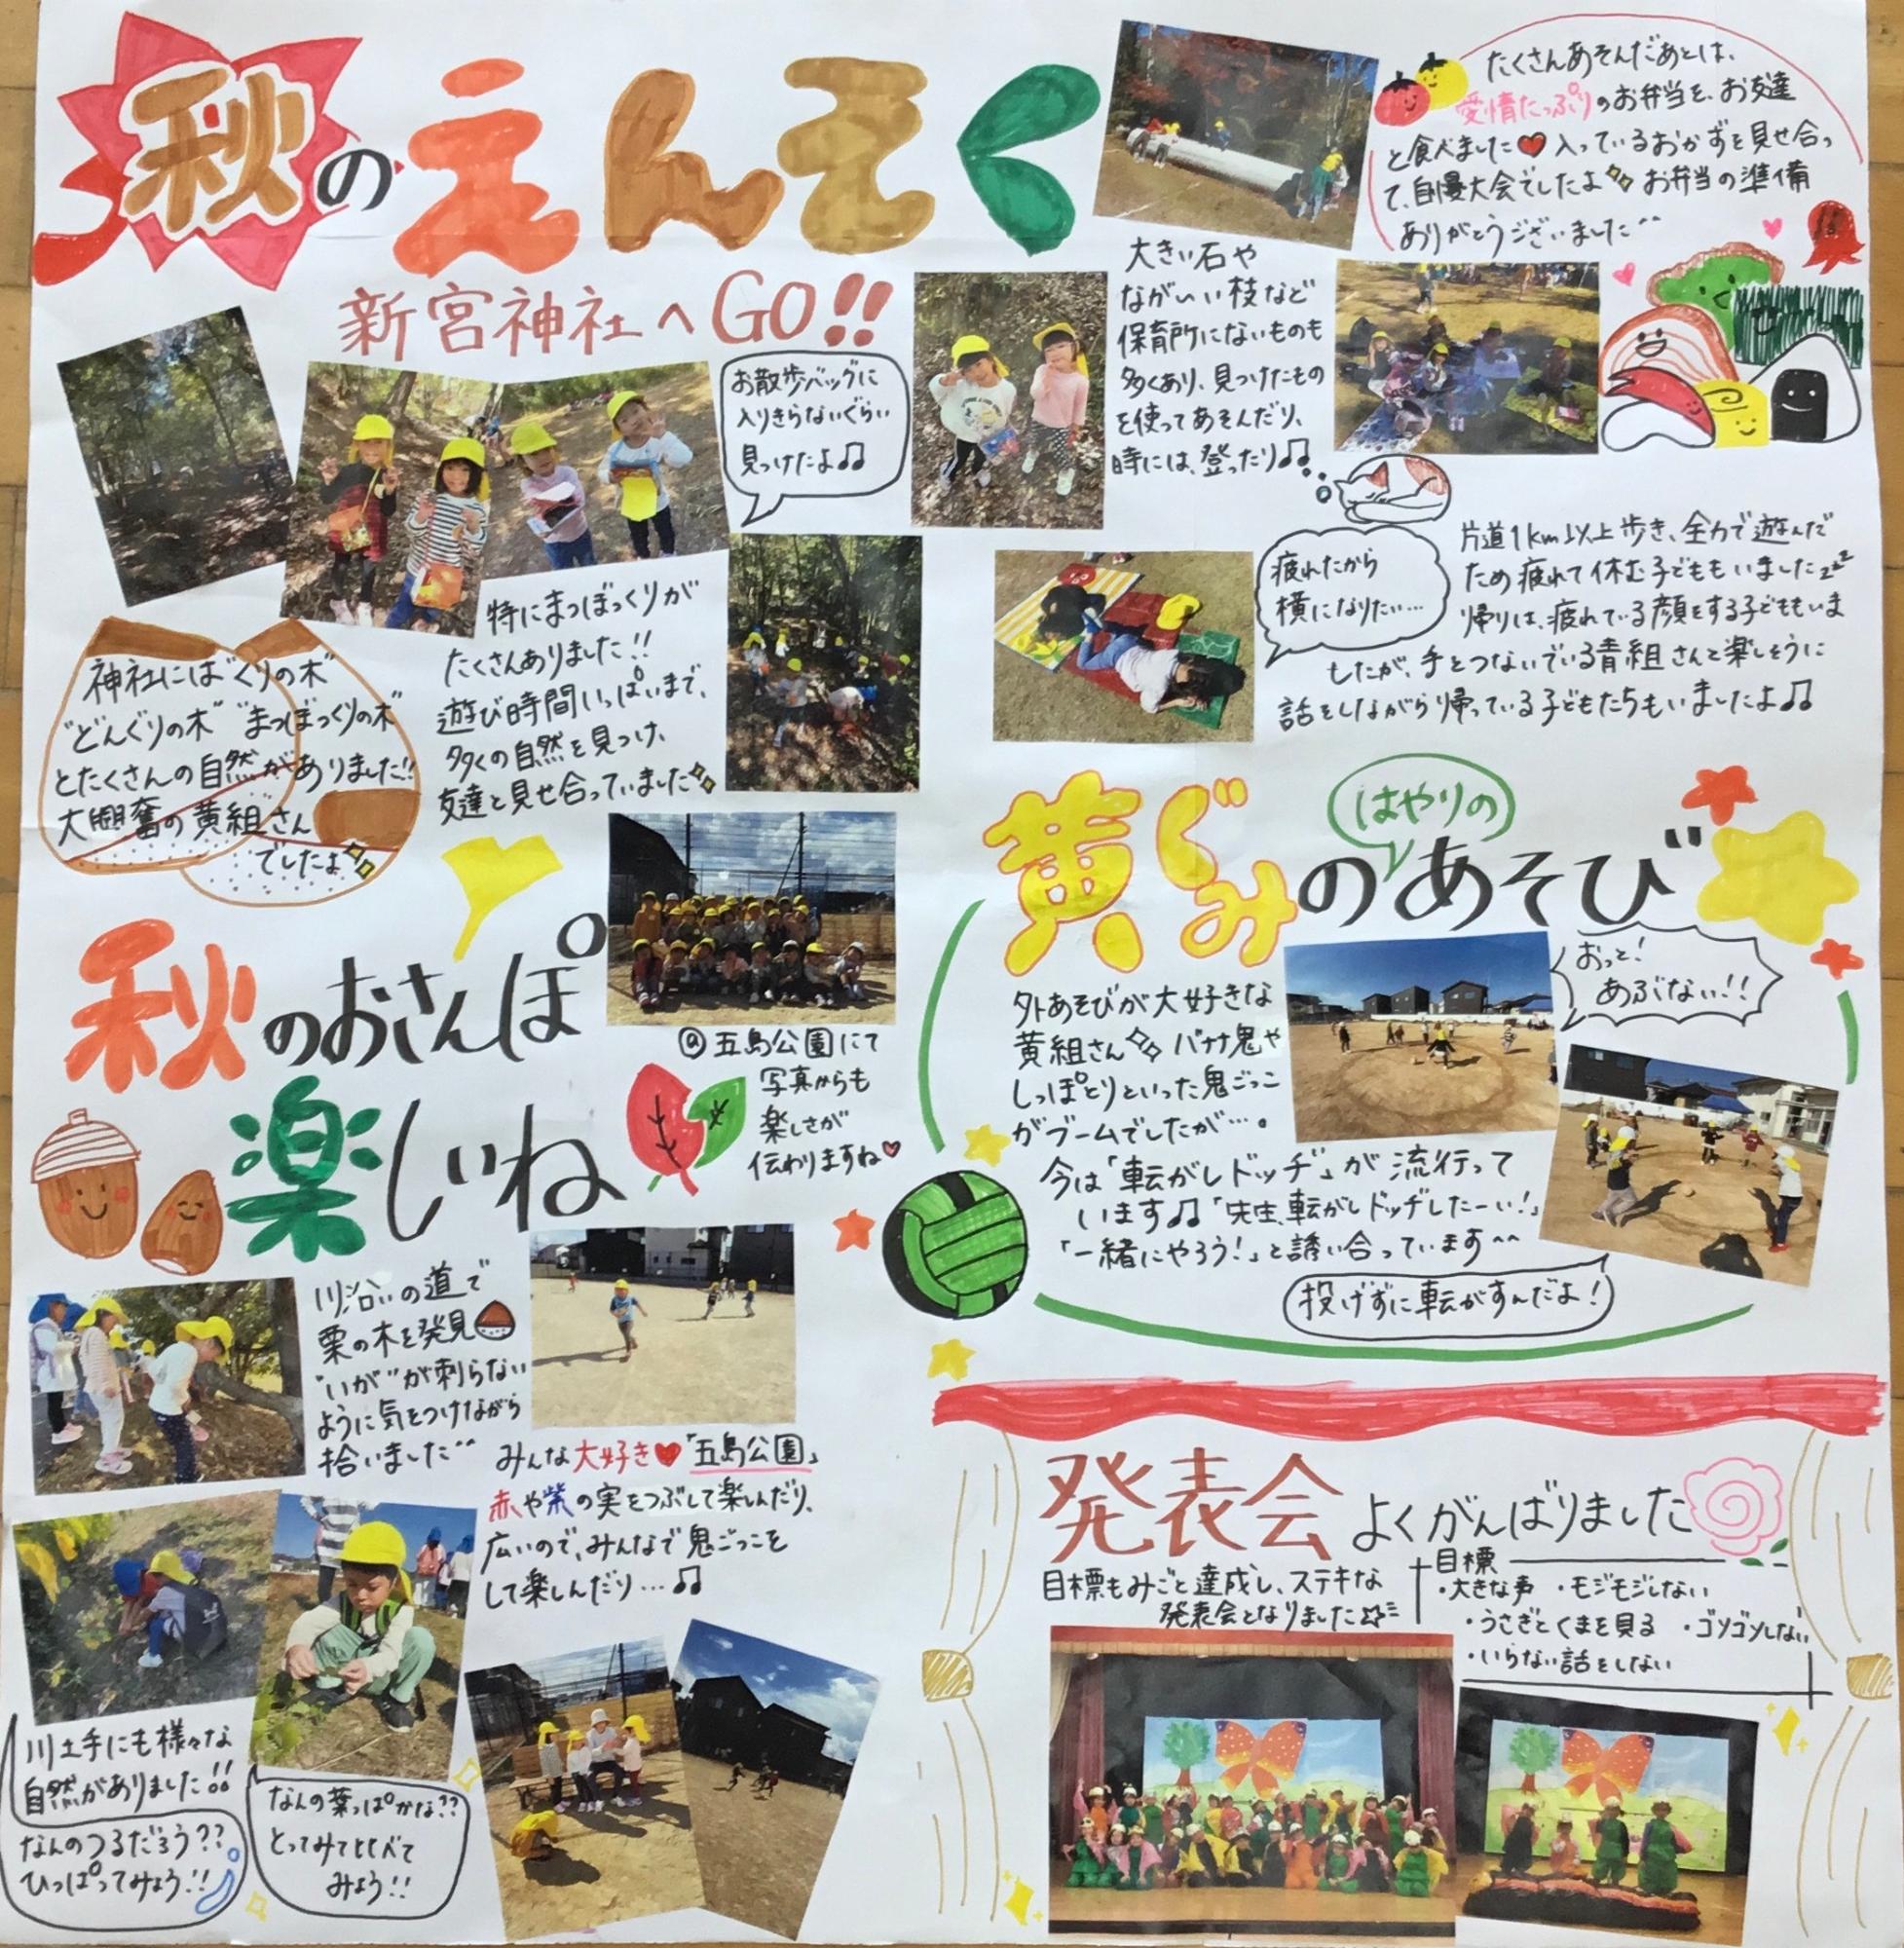 秋のえんそく
新宮神社へGO!!
お散歩バッグに
入りきらないぐらい
見つけたよ♫
神社には"くりの木"
"どんぐりの木""まつぼっくりの木"
とたくさんの自然がありました!!
大興奮の黄組さん
でしたよ
特にまつぼっくりが
たくさんありました!!
遊び時間いっぱいまで、
多くの自然を見つけ、
友達と見せ合っていました
大きい石や
ながーい枝など
保育所にないものも
多くあり、見つけたもの
を使ってあそんだり、
時には、登ったり♫
たくさんあそんだあとは、
愛情たっぷりのお弁当を、お友達
と食べました♥入っているおかずを見せ合っ
て、自慢大会でしたよ お弁当の準備
ありがとうございました^^
疲れたから
横になりたい…
片道1km以上歩き、全力で遊んだ
ため疲れて休む子どももいましたzzz
帰りは、疲れている顔をする子どももいま
したが、手をつないでいる青組さんと楽しそうに
話をしながら帰っている子どもたちもいましたよ♫
秋のおさんぽ
楽しいね
@五島公園にて
写真からも
楽しさが
伝わりますね♡
川沿いの道で
栗の木を発見
"いが"が刺らない
ように気をつけながら
拾いました^^
みんな大好き♥「五島公園」
赤や紫の実をつぶして楽しんだり、
広いので、みんなで鬼ごっこを
して楽しんだり…♫
川土手にも様々な
自然がありました!!
なんのつるだろう??
ひっぱってみよう!!
なんの葉っぱかな??
とってみて比べて
みよう!!
黄ぐみのはやりのあそび
外あそびが大好きな
黄組さん バナナ鬼や
しっぽとりといった鬼ごっこ
がブームでしたが…。
今は「転がしドッヂ」が流行って
います♫「先生、転がしドッヂしたーい!」
「一緒にやろう!」と誘い合っています^^
おっと!
あぶない!!
投げずに転がすんだよ!
発表会よくがんばりました
目標もみごと達成し、ステキな
発表会となりました☆
目標
・大きな声 ・モジモジしない
・うさぎとくまを見る ・ゴソゴソしない
・いらない話をしない